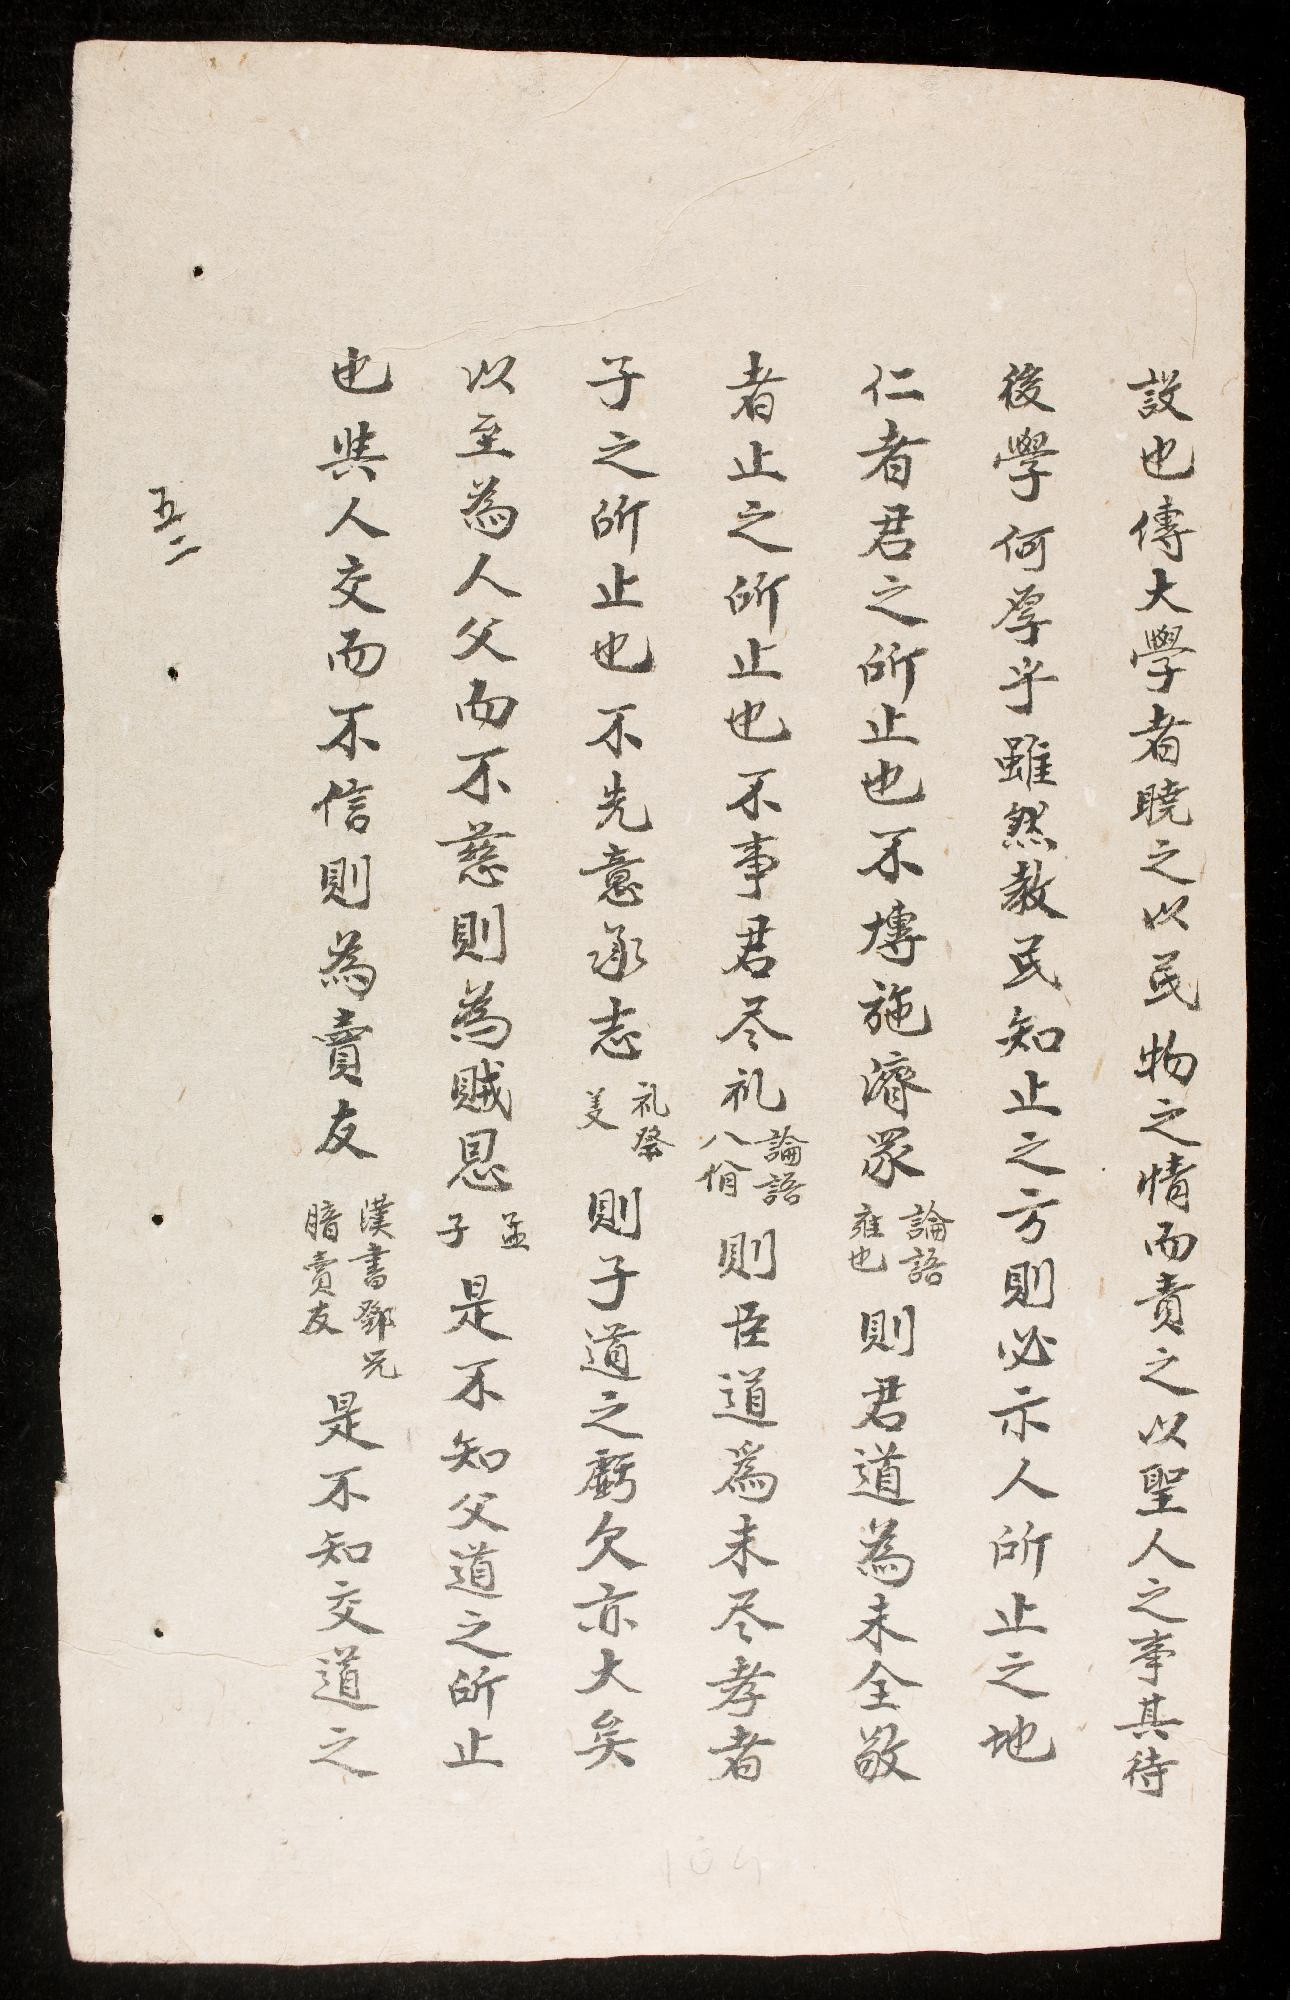 設也傳大學者曉之以民物之情而責之以聖人之事其待
後學何厚乎雖然教民知止之方則必示人所止之地
仁者君之所止也不博施濟眾論語雍也則君道為未全敬
者止之所止也不事君尽礼論語八佾則臣道爲未尽孝者
子之所止也不先意承志礼祭義則子道之虧欠亦大矣
以至為人父而不慈則為賊恩孟子是不知父道之所止
也與人交而不信則為賣友漢書酈况賣友是不知交道之
五二